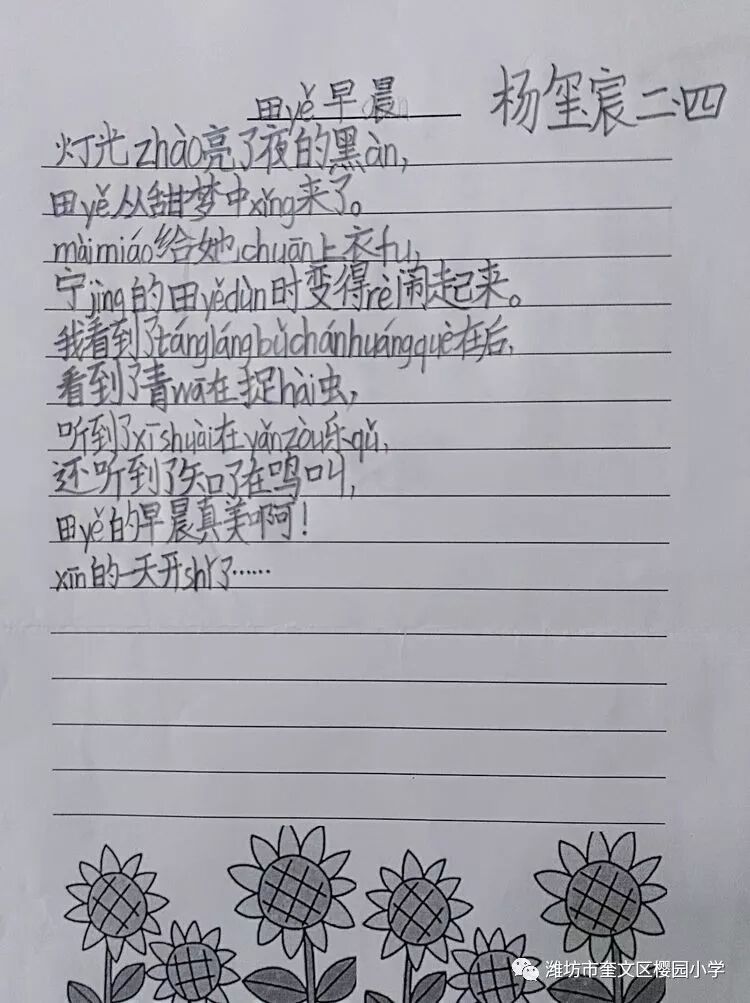 田yě早晨
杨玺宸二.四
灯光zhào亮了夜的黑àn,
田yě从甜梦中xǐng来了。
màimiáo给她chuān上衣fu,
宁jìng的田yědùn时变得rè闹起来。
我看到了tánglángbǔchánhuángquè在后,
看到了青wā在捉hài虫,
听到了xīshuài在yǎnzòu乐qǔ,
还听到了知了在鸣叫,
田yě的早晨真美啊!
xīn的一天开shǐ了……
潍坊市奎文区樱园小学